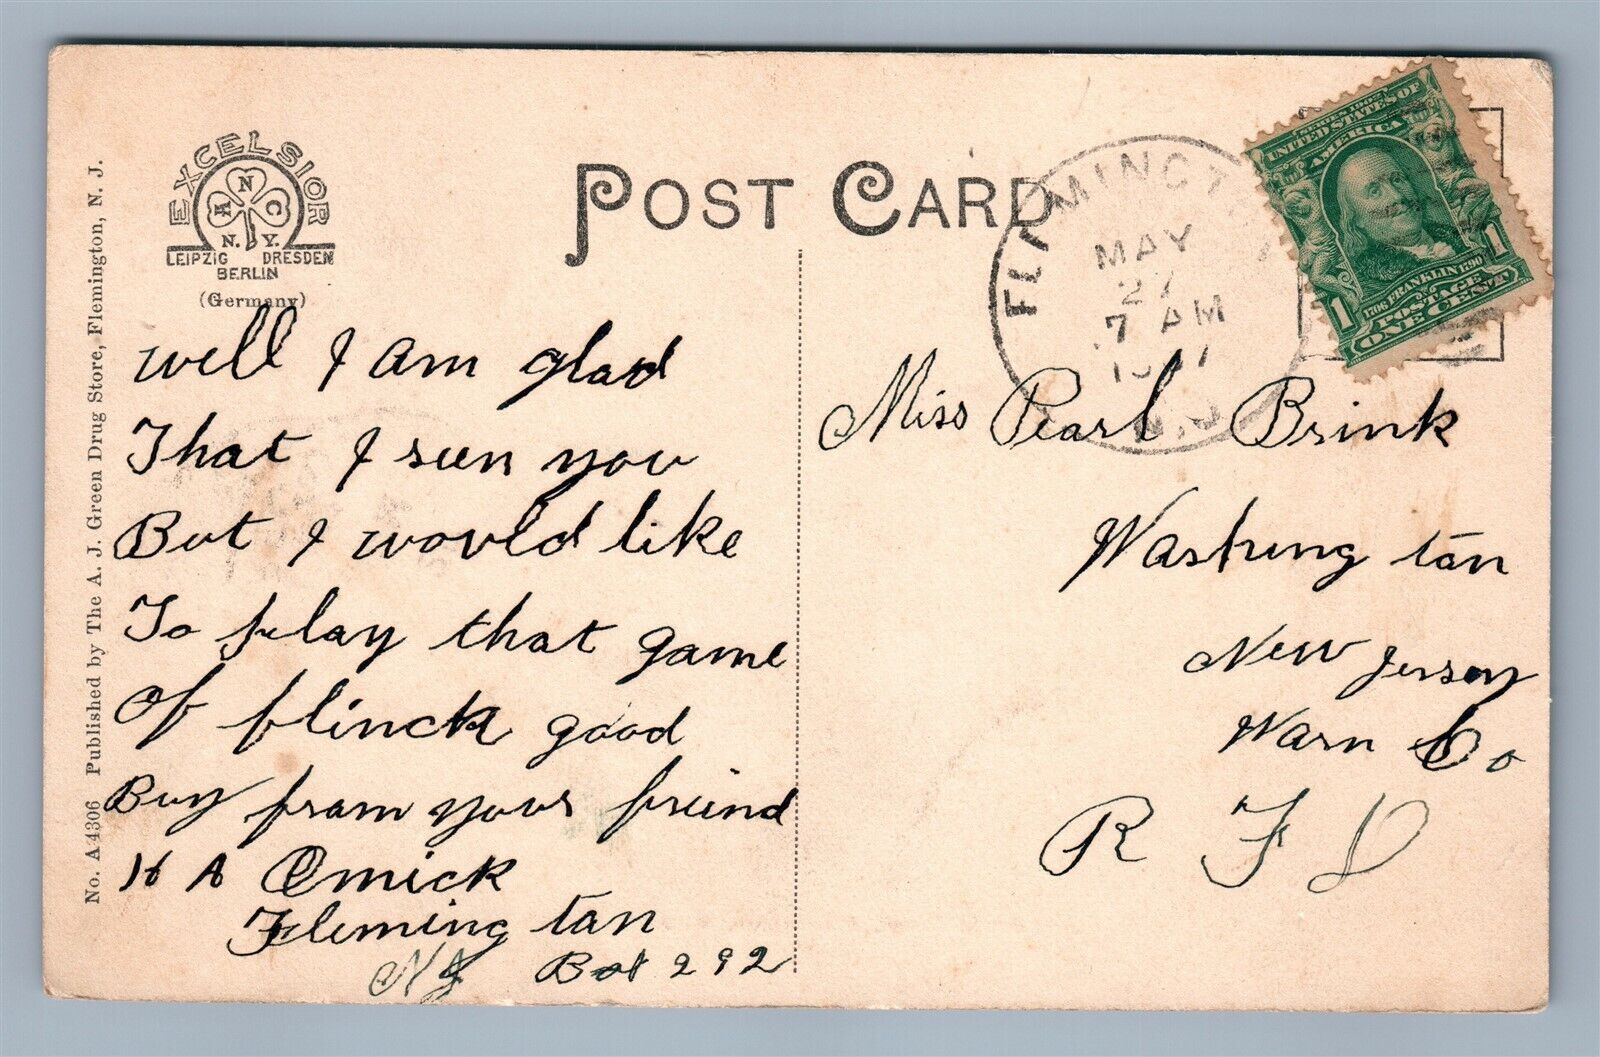 No. A 4306 Published by The A. J. Green Drug Store, Flemington, N. J.
EXCELSIOR
A N C
N. Y.
LEIPZIG DRESDEN
BERLIN
(Germany)
POST CARD
MAY
27
7 AM
N.J.
SERIES 1902
UNITED STATES OF
AMERICA
1706 FRANKLIN 1790
1 1
POSTAGE
ONE CENT
well I am glad
That I seen you
But I would like
To play that game
Of flinck good
Buy fram your freind
H A Emick
Fleming tan
NJ Box 292
Miss Pearl Brink
Washing tan
New Jersey
Warn Co
R F D